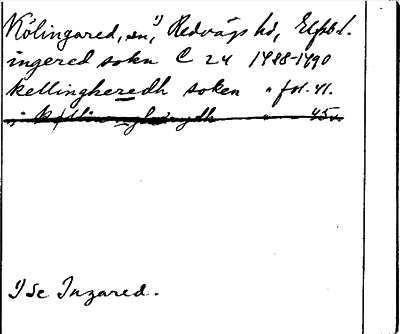 Kölingared, sn¹⁾, Redvägs hd, Elfsb. l.
ingered sokn C 24 1488-1490
kellingheredh soken " fol. 41.
" 45v.
1) Se Ingared.